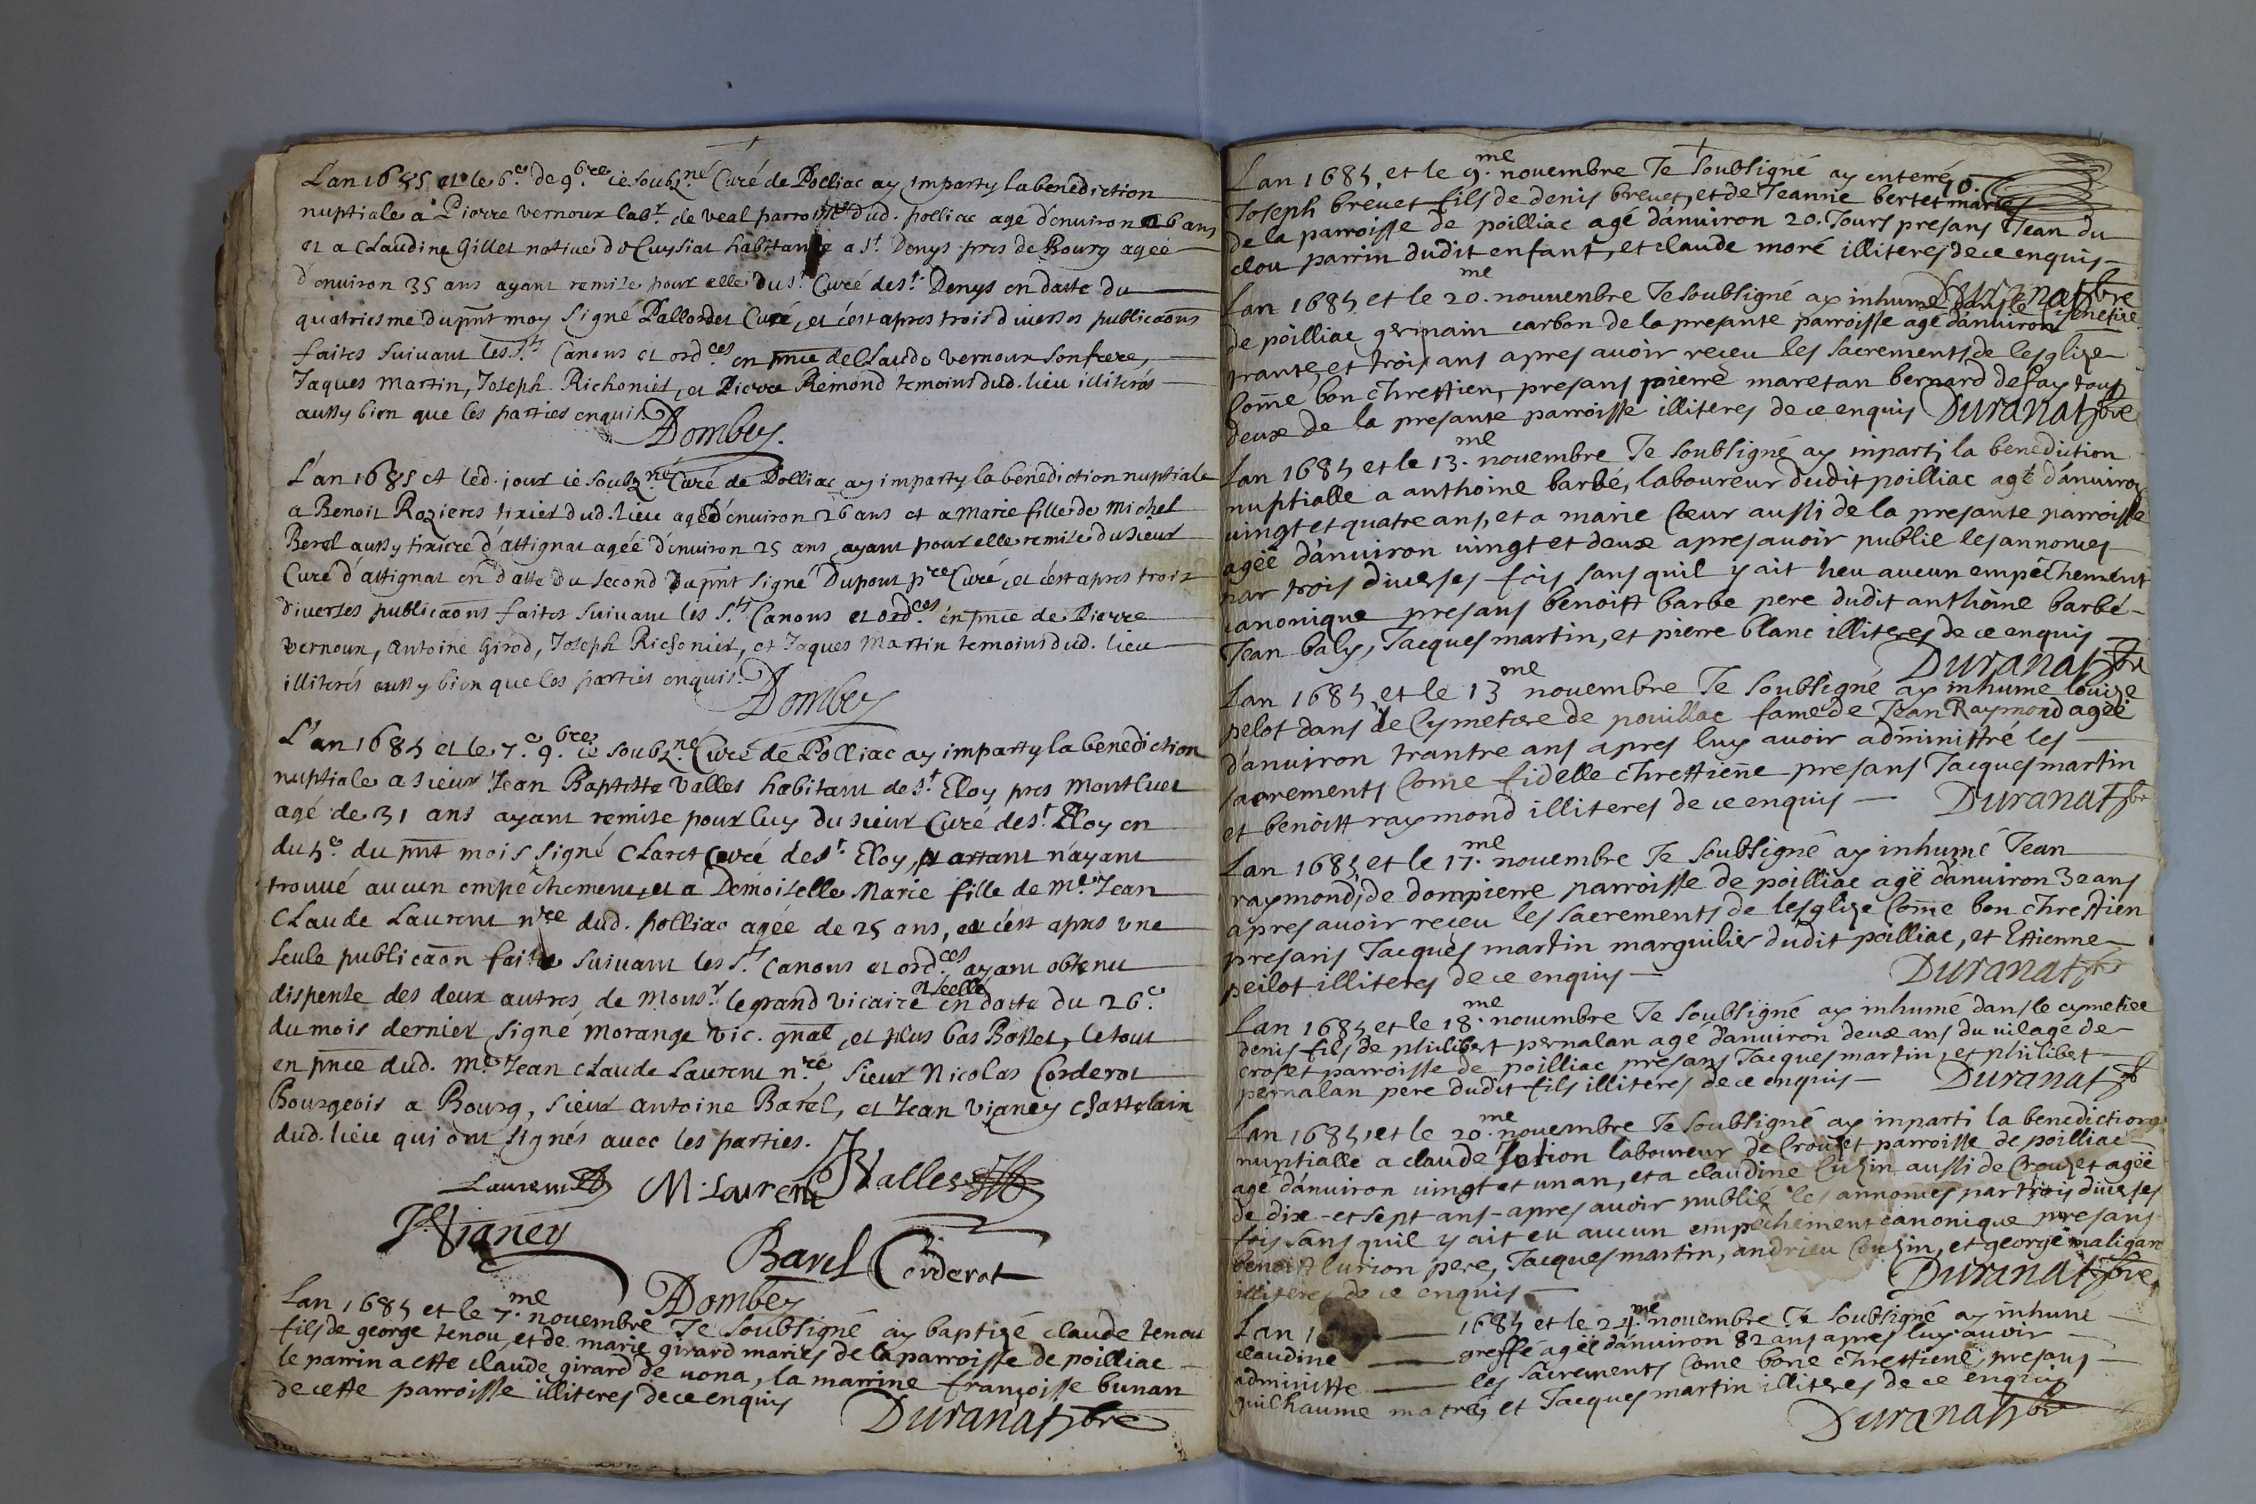 L'an 1685 et le 6.e de 9.bre ie soubz.né Curé de Polliac ay imparty la benediction
nuptiale a Pierre vernoux lab.r de veal parroisse dud. polliac agé d'enuiron 26 ans
et a Claudine Gillet natiue de Cuysiat habitante a S.t Denys pres de Bourg agée
d'enuiron 35 ans ayant remise pour elle du S.r Curé de S.t Denys en datte du
quatriesme du pñt moy signé Pallordet Curé, et c'est apres trois diuerses publicaõns
faites suiuant les S.ts Canons et ord.ces en pñce de Claude vernoux son frere,
Jaques Martin, Joseph Richonier, et Pierre Remond temoins dud. lieu illiterés
aussy bien que les parties enquis. Dombey.
L'an 1685 et led. jour ie soubz.né Curé de Polliac ay imparty la benediction nuptiale
a Benoit Rozieres tixier dud. lieu agé d'enuiron 26 ans et a Marie fille de Michel
Berel aussy tixiere d'attignat agée d'enuiron 25 ans ayant pour elle remise du sieur
Curé d'attignat en datte du second du pñt signé Dupont p.re Curé, et c'est apres trois
diuerses publicaõns faites suiuant les S.ts Canons et ord.ces en pñce de Pierre
vernoux, Antoine Girod, Joseph Richonier, et Jaques Martin temoins dud. lieu
illiterés aussy bien que les parties enquis. Dombey
L'an 1685 et le 7.e 9.bre ie soubz.né Curé de Polliac ay imparty la benediction
nuptiale a sieur Jean Baptiste Valles habitant de S.t Eloy pres Montluel
agé de 31 ans ayant remise pour luy du sieur Curé de S.t Eloy en
du 5.e du pñt mois signé Claret Curé de S.t Eloy, attant n'ayant
trouué aucun empechement, et a Demoiselle Marie fille de M.e Jean
Claude Laurent n.re dud. polliac agée de 25 ans, et c'est apres vne
seule publicaõn faite suiuant les S.ts Canons et ord.ces ayant obtenu
dispense des deux autres de Mons.r le grand vicaire n̄celle en datte du 26.e
du mois dernier signé Morange vic. gñal, et plus bas Basset, le tout
en pñce dud. M.e Jean Claude Laurent n.re, sieur Nicolas Corderot
Bourgeois a Bourg, sieur Antoine Barel, et Jean Vianey Chastelain
dud. lieu qui ont signés auec les parties.
Laurent M. Laurent JB Valles
J. Vianey Barel Corderot
Dombey
Lan 1685 et le 7.me nouembre Je soubsigné ay baptizé claude tenou
fils de george tenou, et de marie girard mariés de la parroisse de poilliac
le parrin a este claude girard de uona, la marrine françoisse bunan
de cette parroisse illiteres de ce enquis Duranat pbre
Lan 1685, et le 9.me nouembre Je soubsigné ay enterré
Joseph breuet fils de denis breuet, et de Jeanne bertet mariés
de la parroisse de poilliac agé d'anuiron 20. Jours presans Jean du
clou parrin dudit enfant, et claude moré illiteres de ce enquis
Duranat pbre
Lan 1685 et le 20.me nouuenbre Je soubsigné ay inhumé dans le Cimetire
de poilliac germain carbon de la presante parroisse agé d'anuiron
trante et trois ans apres auoir receu les sacrements de lesglize
Come bon chrestien, presans pierre maretan bernard defay tous
deux de la presante parroisse illiteres de ce enquis Duranat pbre
Lan 1685 et le 13.me nouembre Je soubsigné ay inparti la benediction
nuptialle a anthoine barbé, laboureur dudit poilliac agé d'anuiron
uingt et quatre ans, et a marie Cœur aussi de la presante parroisse
agëe d'anuiron uingt et deux apres auoir publié les annonces
par trois diuerses fois sans quil y ait heu aucun empéchement
canonique presans benoist barbé pere dudit anthoine barbé
Jean baly, Jacques martin, et pierre blanc illiteres de ce enquis
Duranat pbre
Lan 1685, et le 13 me nouembre Je soubsigné ay inhumé louize
pelot dans le Cymetere de pouillac fame de Jean Raymond agëe
d'anuiron trantre ans apres luy auoir administré les
sacrements Come fidelle chrestiene presans Jacques martin
et benoist raymond illiteres de ce enquis Duranat pbre
Lan 1685, et le 17.me nouembre Je soubsigné ay inhumé Jean
raymond, de dompierre parroisse de poilliac agé d'anuiron 30 ans
apres auoir receu les sacrements de lesglize Come bon chrestien
presans Jacques martin marguilier dudit poilliac, et Ettienne
peilot illiteres de ce enquis Duranat pbre
Lan 1685 et le 18.me nouembre Je soubsigné ay inhumé dans le cymetiee
denis fils de philibert pernalan agé d'anuiron deux ans du uilage de
croset parroisse de poilliac presans Jacques martin, et philibet
pernalan pere dudit fils illiteres de ce enquis Duranat pb
Lan 1685, et le 20.me nouembre Je soubsigné ay inparti la benediction
nuptialle a claude lurion laboureur de Crouzet parroisse de poilliac
agé d'anuiron uingt et un an, et a claudine Cuzin aussi de Crouzet agëe
de dix et sept ans apres auoir publié les annonces par trois diuerses
fois sans quil y ait eu aucun empechement canonique presans
benoist lurion pere, Jacques martin, andrieu Couzin, et george maligan
illiteres de ce enquis Duranat pbre
Lan 1685 et le 24.me nouembre Je soubsigné ay inhumé
claudine greffé agëe d'anuiron 82 ans apres luy auoir
administte les sacrements Come bone chrestiene, presans
guilhaume et Jacques martin illiteres de ce enquis
Duranat pbr